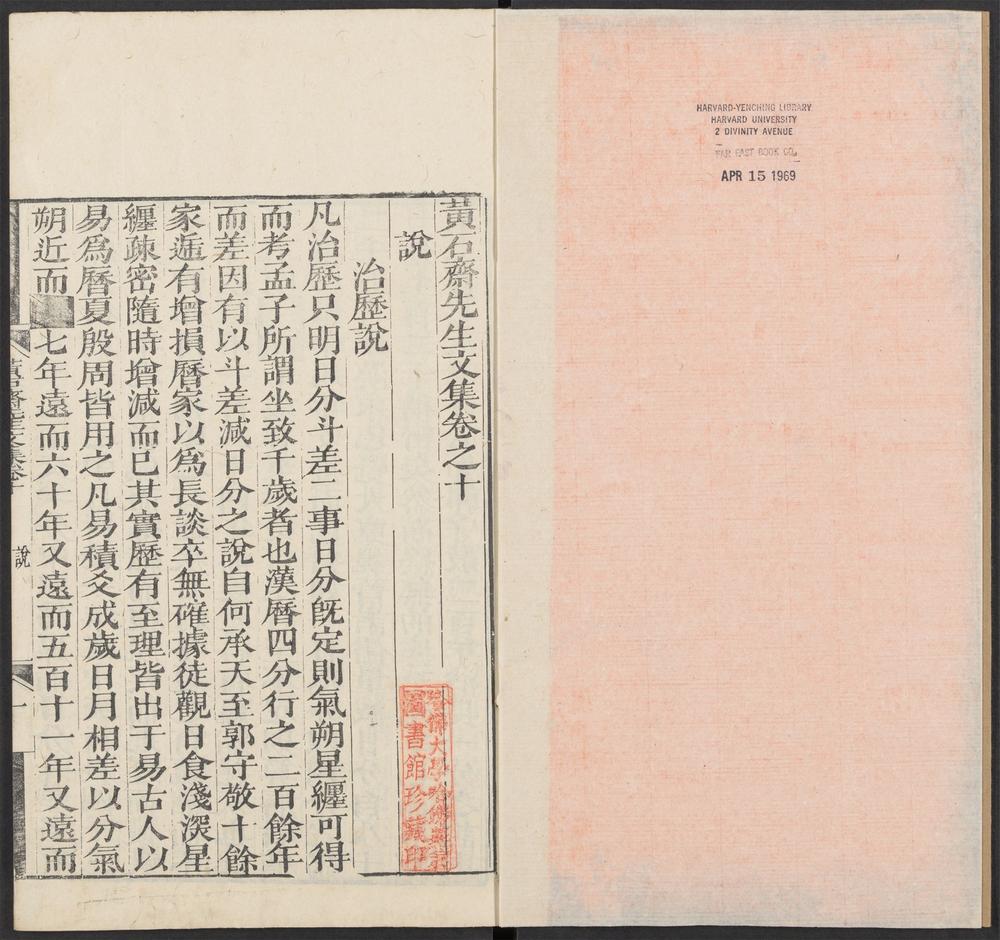 HARVARD-YENCHING LIBRARY
HARVARD UNIVERSITY
2 DIVINITY AVENUE
FAR EAST BOOK CO.
APR 15 1969
黃石齋先生文集卷之十
說
治歷說
凡治歷只明日分斗差二事日分旣定則氣朔星纒可得
而考孟子所謂坐致千歲者也漢曆四分行之二百餘年
而差因有以斗差減日分之說自何承天至郭守敬十餘
家遞有增損曆家以爲長談卒無確據徒觀日食淺深星
纒疎密隨時增減而已其實歷有至理皆出于易古人以
易爲曆夏殷周皆用之凡易積爻成歲日月相差以分氣
朔近而 七年遠而六十年又遠而五百十一年又遠而
說
一
哈佛大學哈佛燕京
圖書館珍藏印